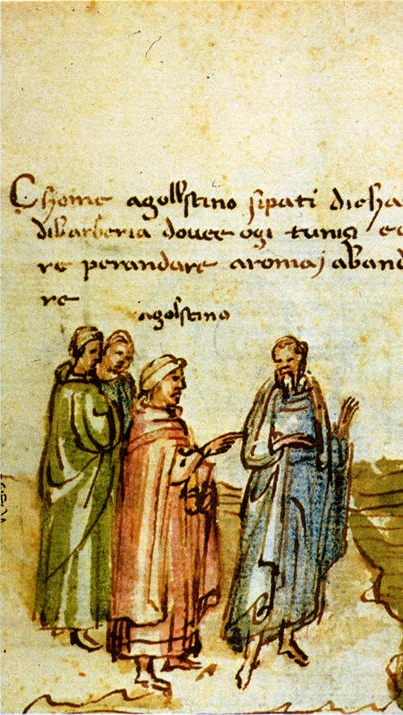 Chome agollstino sipati dicha
dibarberia dovee ogi tunici ec
re perandare aroma aband
re
agolstino